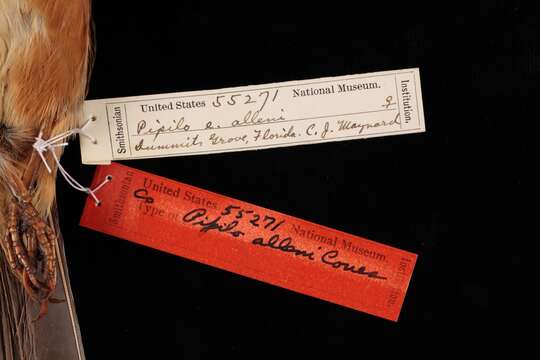 Smithsonian
United States 55271 National Museum.
Pipilo e. alleni ♀
Dummits Grove, Florida. C. J. Maynard
Institution.
Smithsonian
United States 55271 National Museum.
Co Type of Pipilo alleni Coues